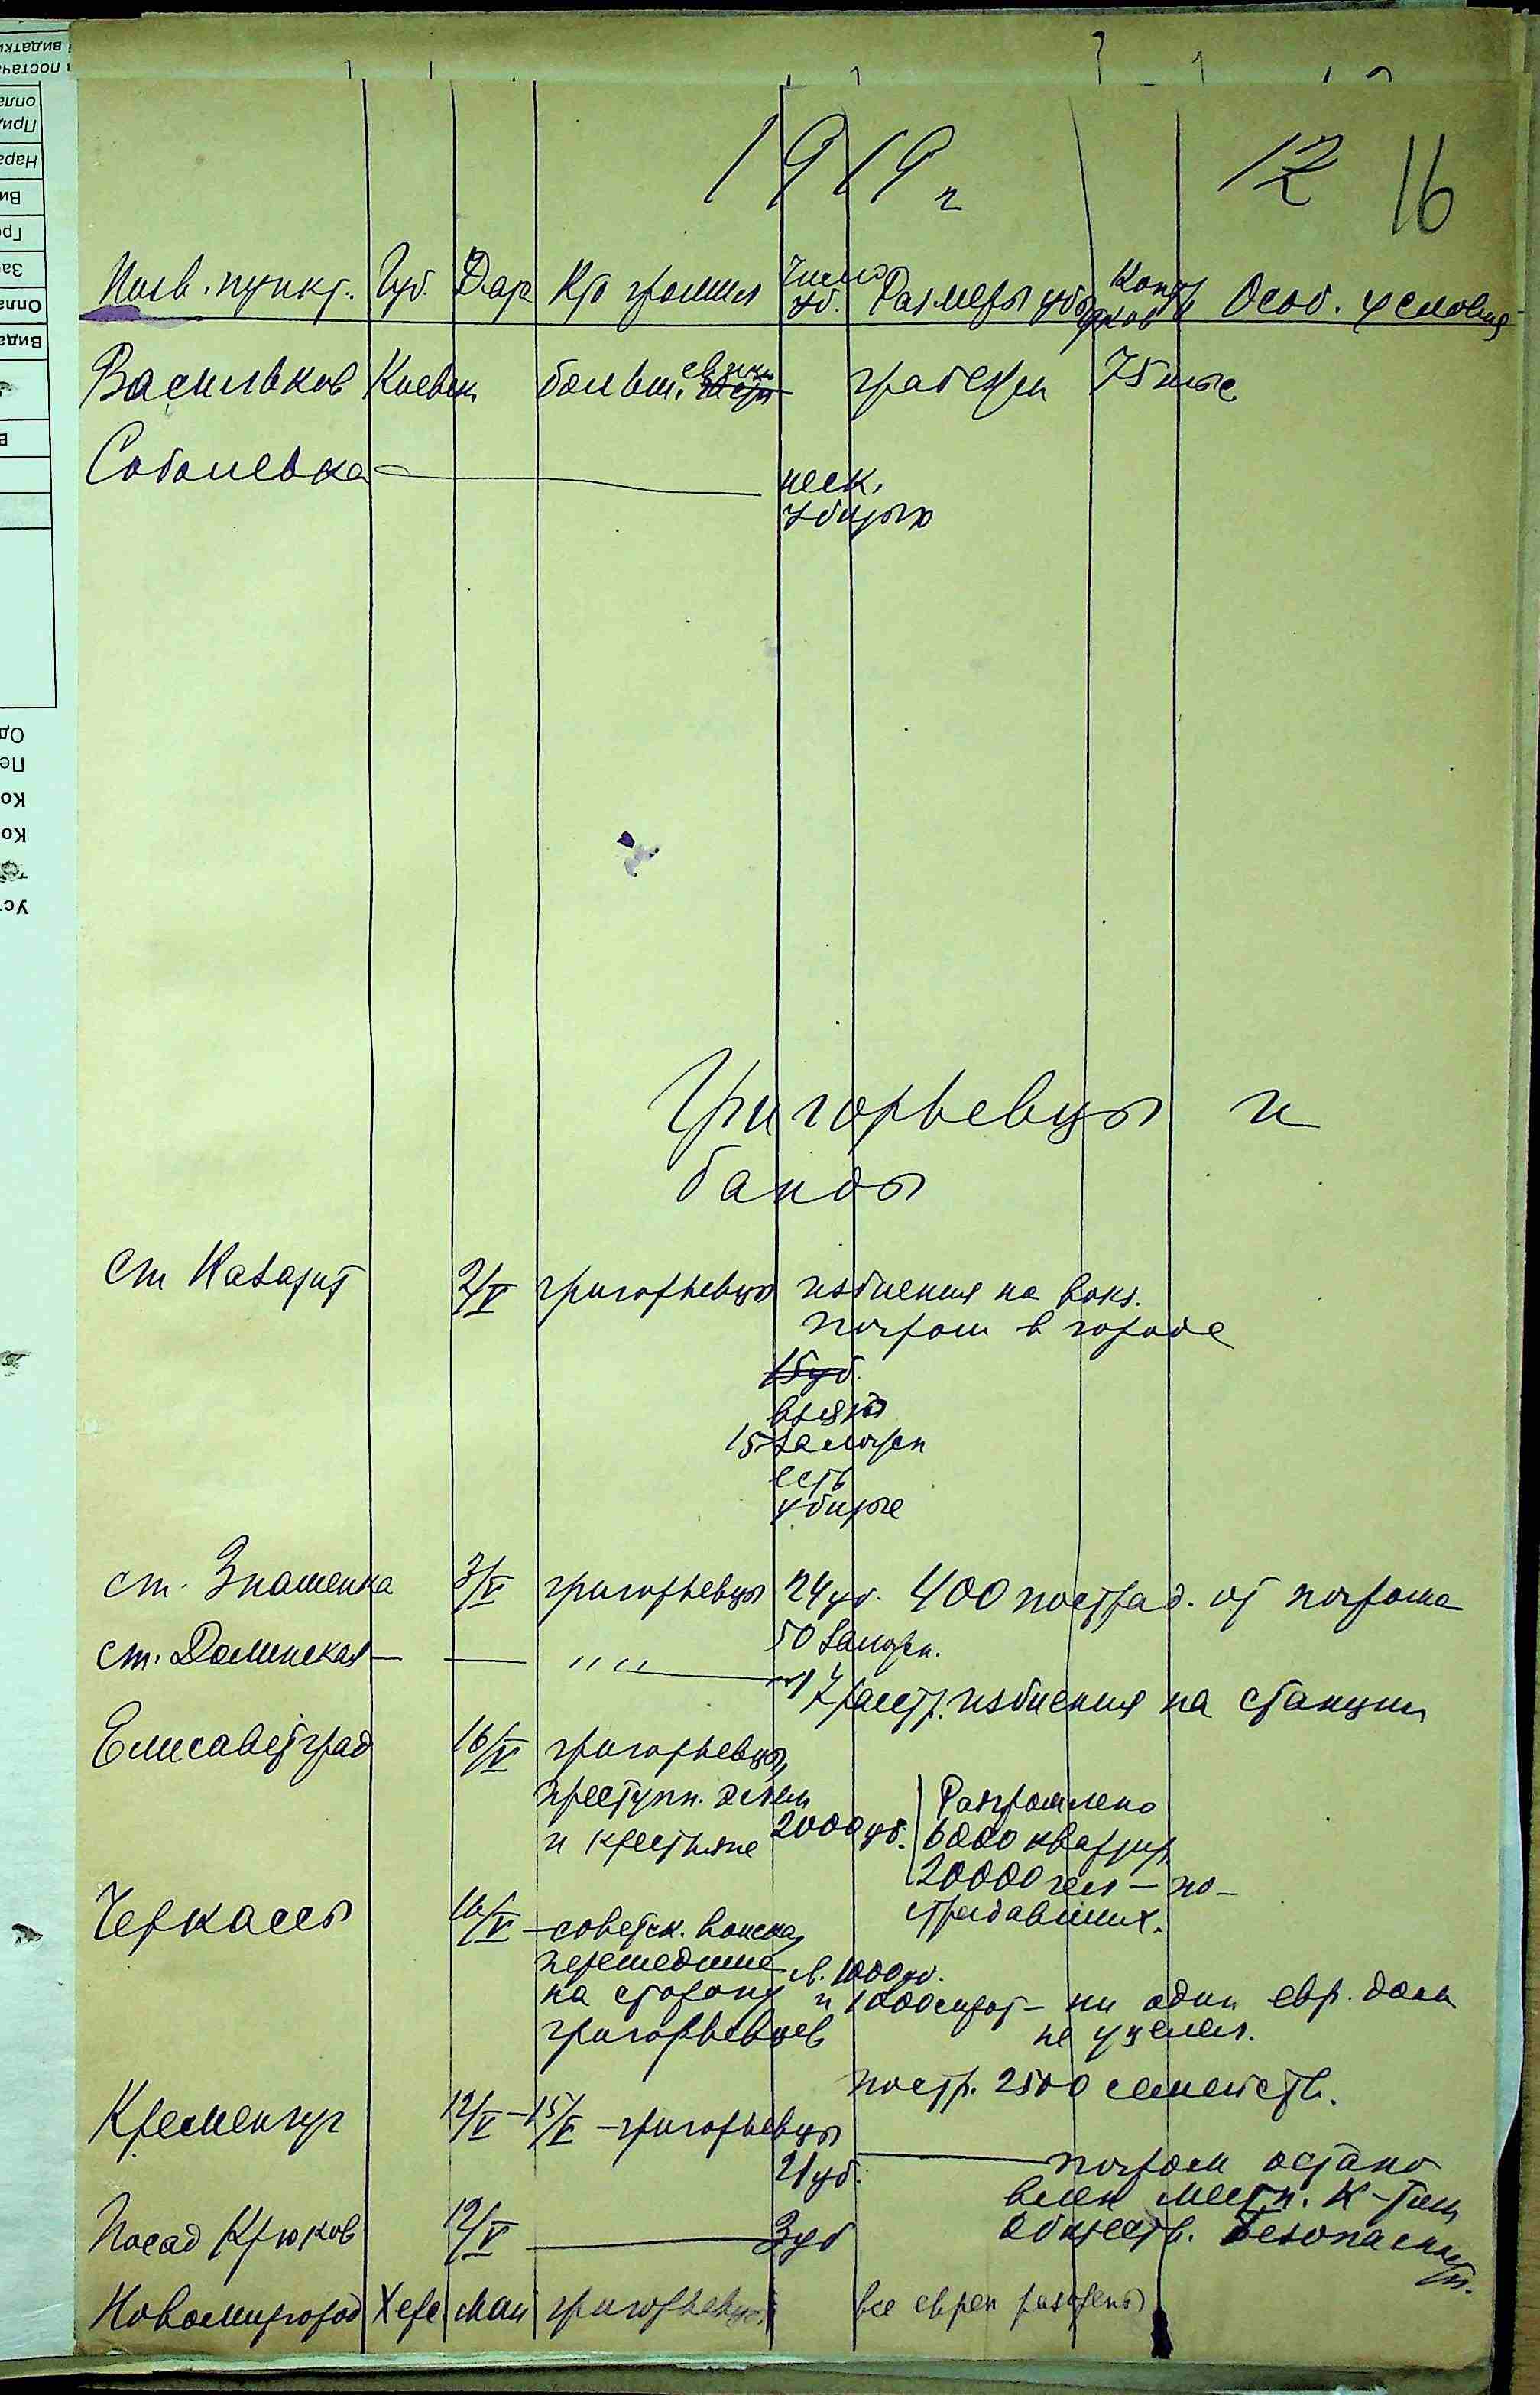 1919 г 12 16
Насв. пункт. Губ. Дата Кто громил Число уб. Размеры уб. Особ. условия
Васильков Киевск больш. грабежи 75 тыс
Соболевка неск.
убитых
Григорьевцы и
банды
ст 2/V григорьевцы избиения на вокз.
погром в городе
15 уб.
взято
15 залож
есть
убитые
ст. Знаменка 3/V григорьевцы 24 уб. 400 пострад. от погрома
ст. Долинская — — " " 50 залож.
избиения на станции
Елисаветград 16/V григорьевцы,
преступн. элем
и крестьяне 2000 уб.
Разгромлено
6000 квартир
20000 чел — по-
страдавших.
Черкассы 16/V — советск. войска,
перешедшие
на сторону
григорьевцев
св. 1000 уб.
и 1000 сирот — ни один евр. дом
не уцелел.
постр. 2500 семейств.
Кременчуг 12/V – 15/V — григорьевцы
21 уб. — погром остано
влен местн. к-том
обществ. безопасности.
Посад Крюков 12/V — 3 уб
Новомиргород Херс май григорьевцы все евреи разорены
Вида
Опла
За
Гро
Ви
Нара
При
опла
Од
Пе
Ко
Ко
Ус